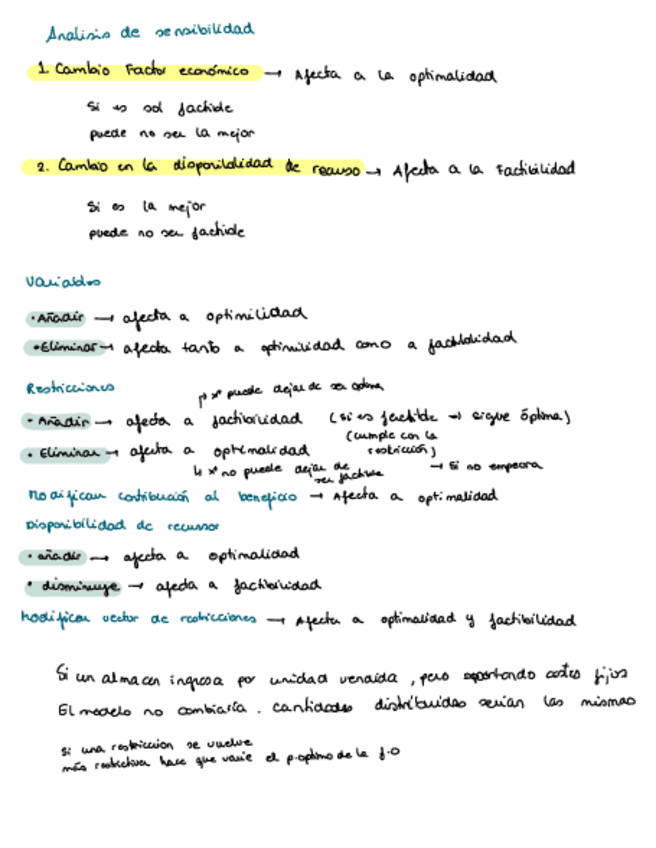 Analisis de sensibilidad
1. Cambio Factor económico → Afecta a la optimalidad
Si es sol factible
puede no ser la mejor
2. Cambio en la disponibilidad de recurso → Afecta a la Factibilidad
Si es la mejor
puede no ser factible
Variables
· Añadir → afecta a optimilidad
· Eliminar → afecta tanto a optimilidad como a factibilidad
Restricciones
↱ x* puede dejar de ser optima
· Añadir → afecta a factibilidad (si es factible → sigue óptima)
(cumple con la restricción)
· Eliminar → afecta a optimalidad
↳ x* no puede dejar de ser factible → Si no empeora
Modificar contribución al beneficio → Afecta a optimalidad
Disponibilidad de recursos
· añadir → afecta a optimalidad
· disminuye → afecta a factibilidad
Modificar vector de restricciones → Afecta a optimalidad y factibilidad
Si un almacen ingresa por unidad vendida, pero soportando costes fijos
El modelo no cambiaría. cantidades distribuidas serian las mismas
Si una restriccion se vuelve
más restrictiva hace que varie el p.optimo de la f.o